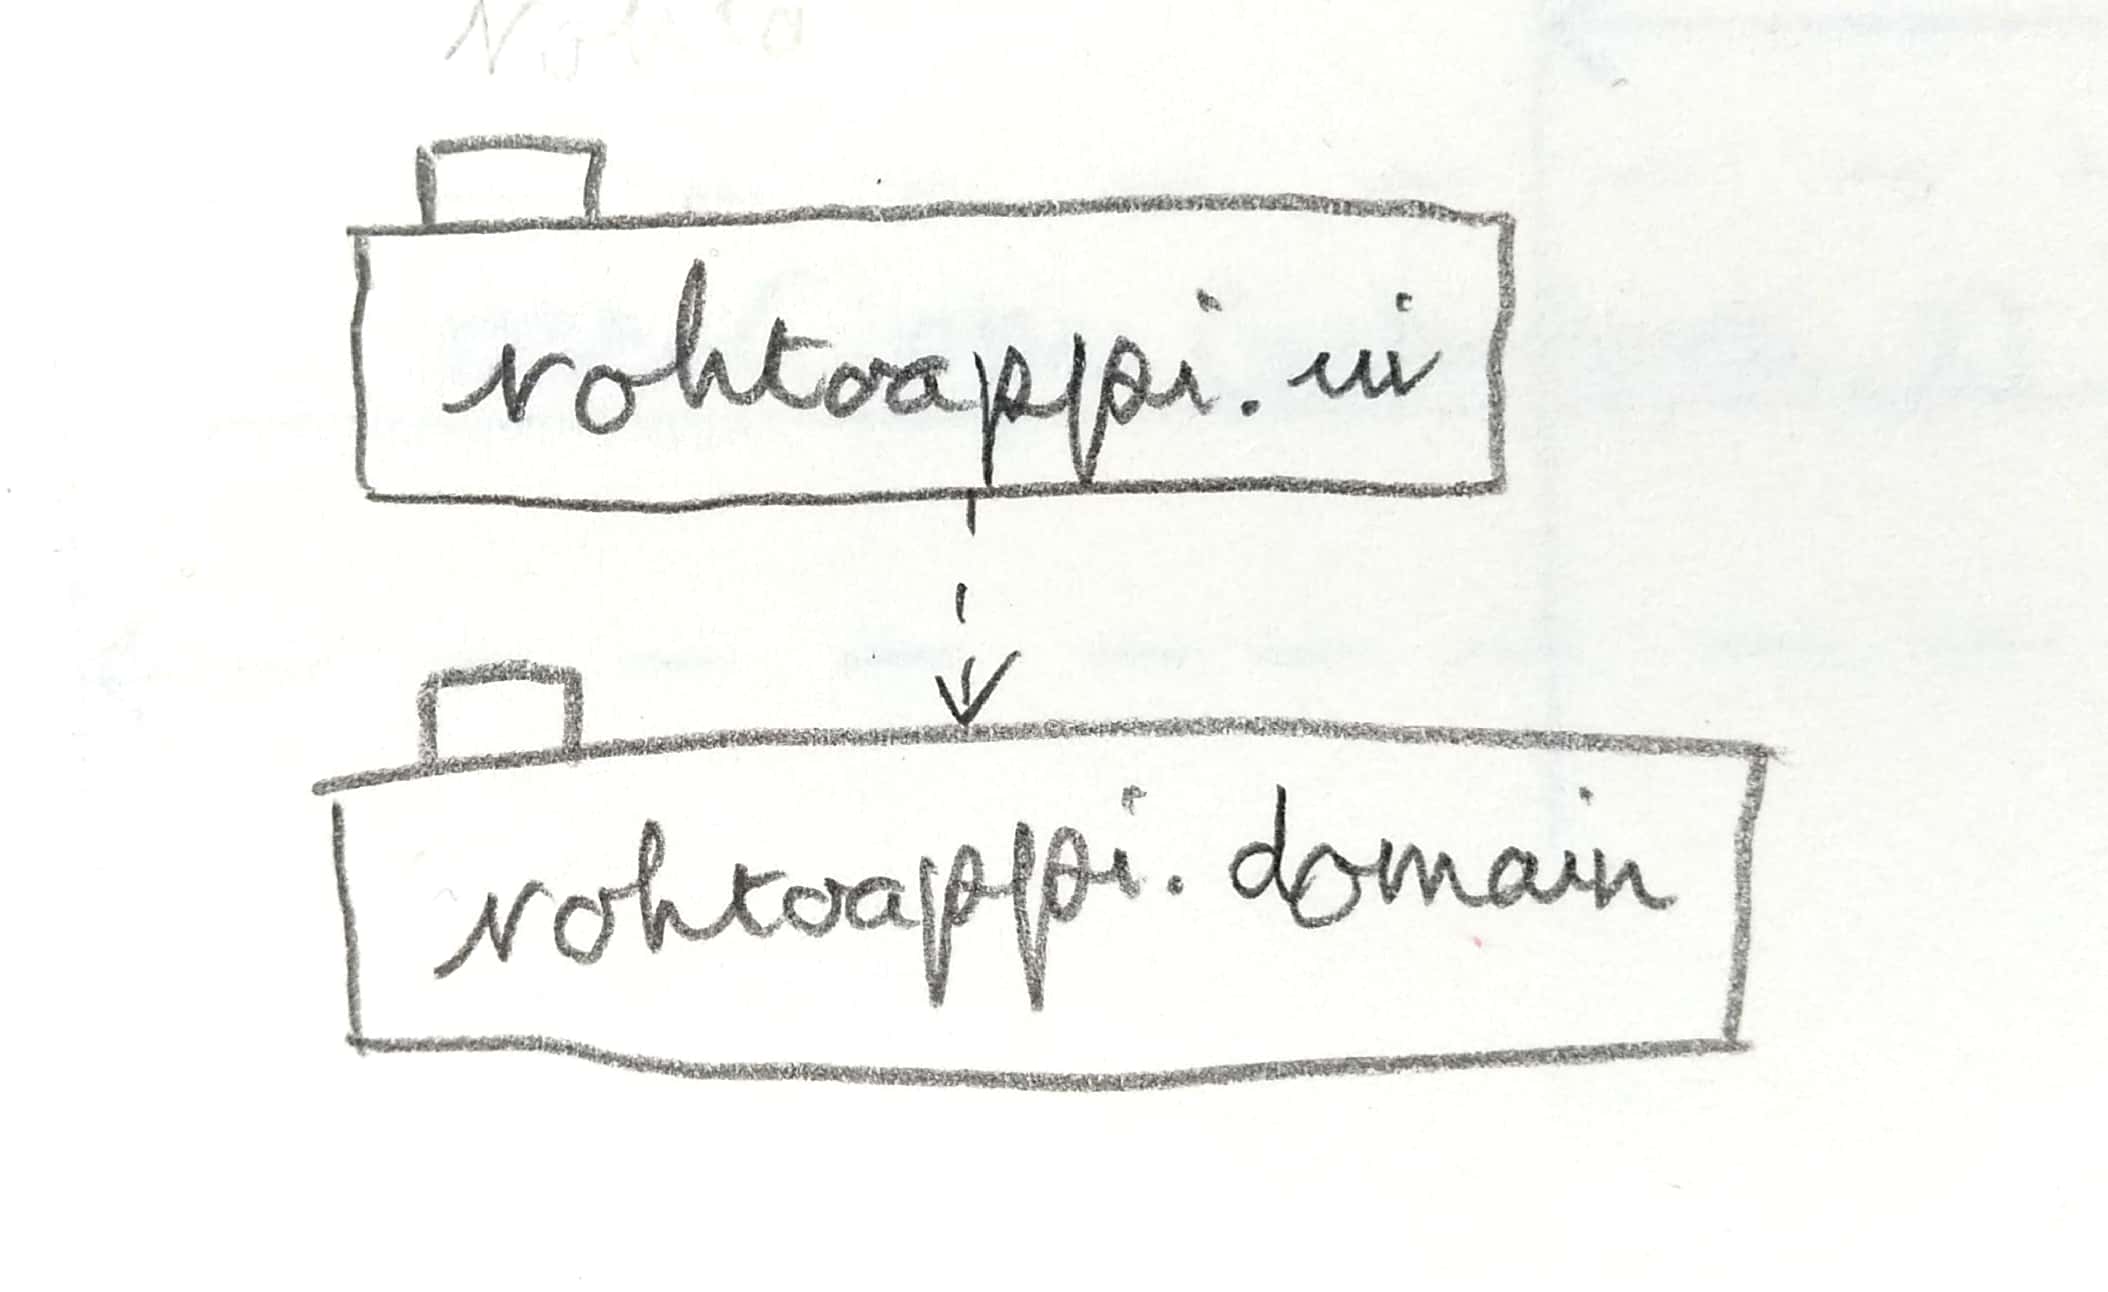 rohtoappi.ui
rohtoappi.domain